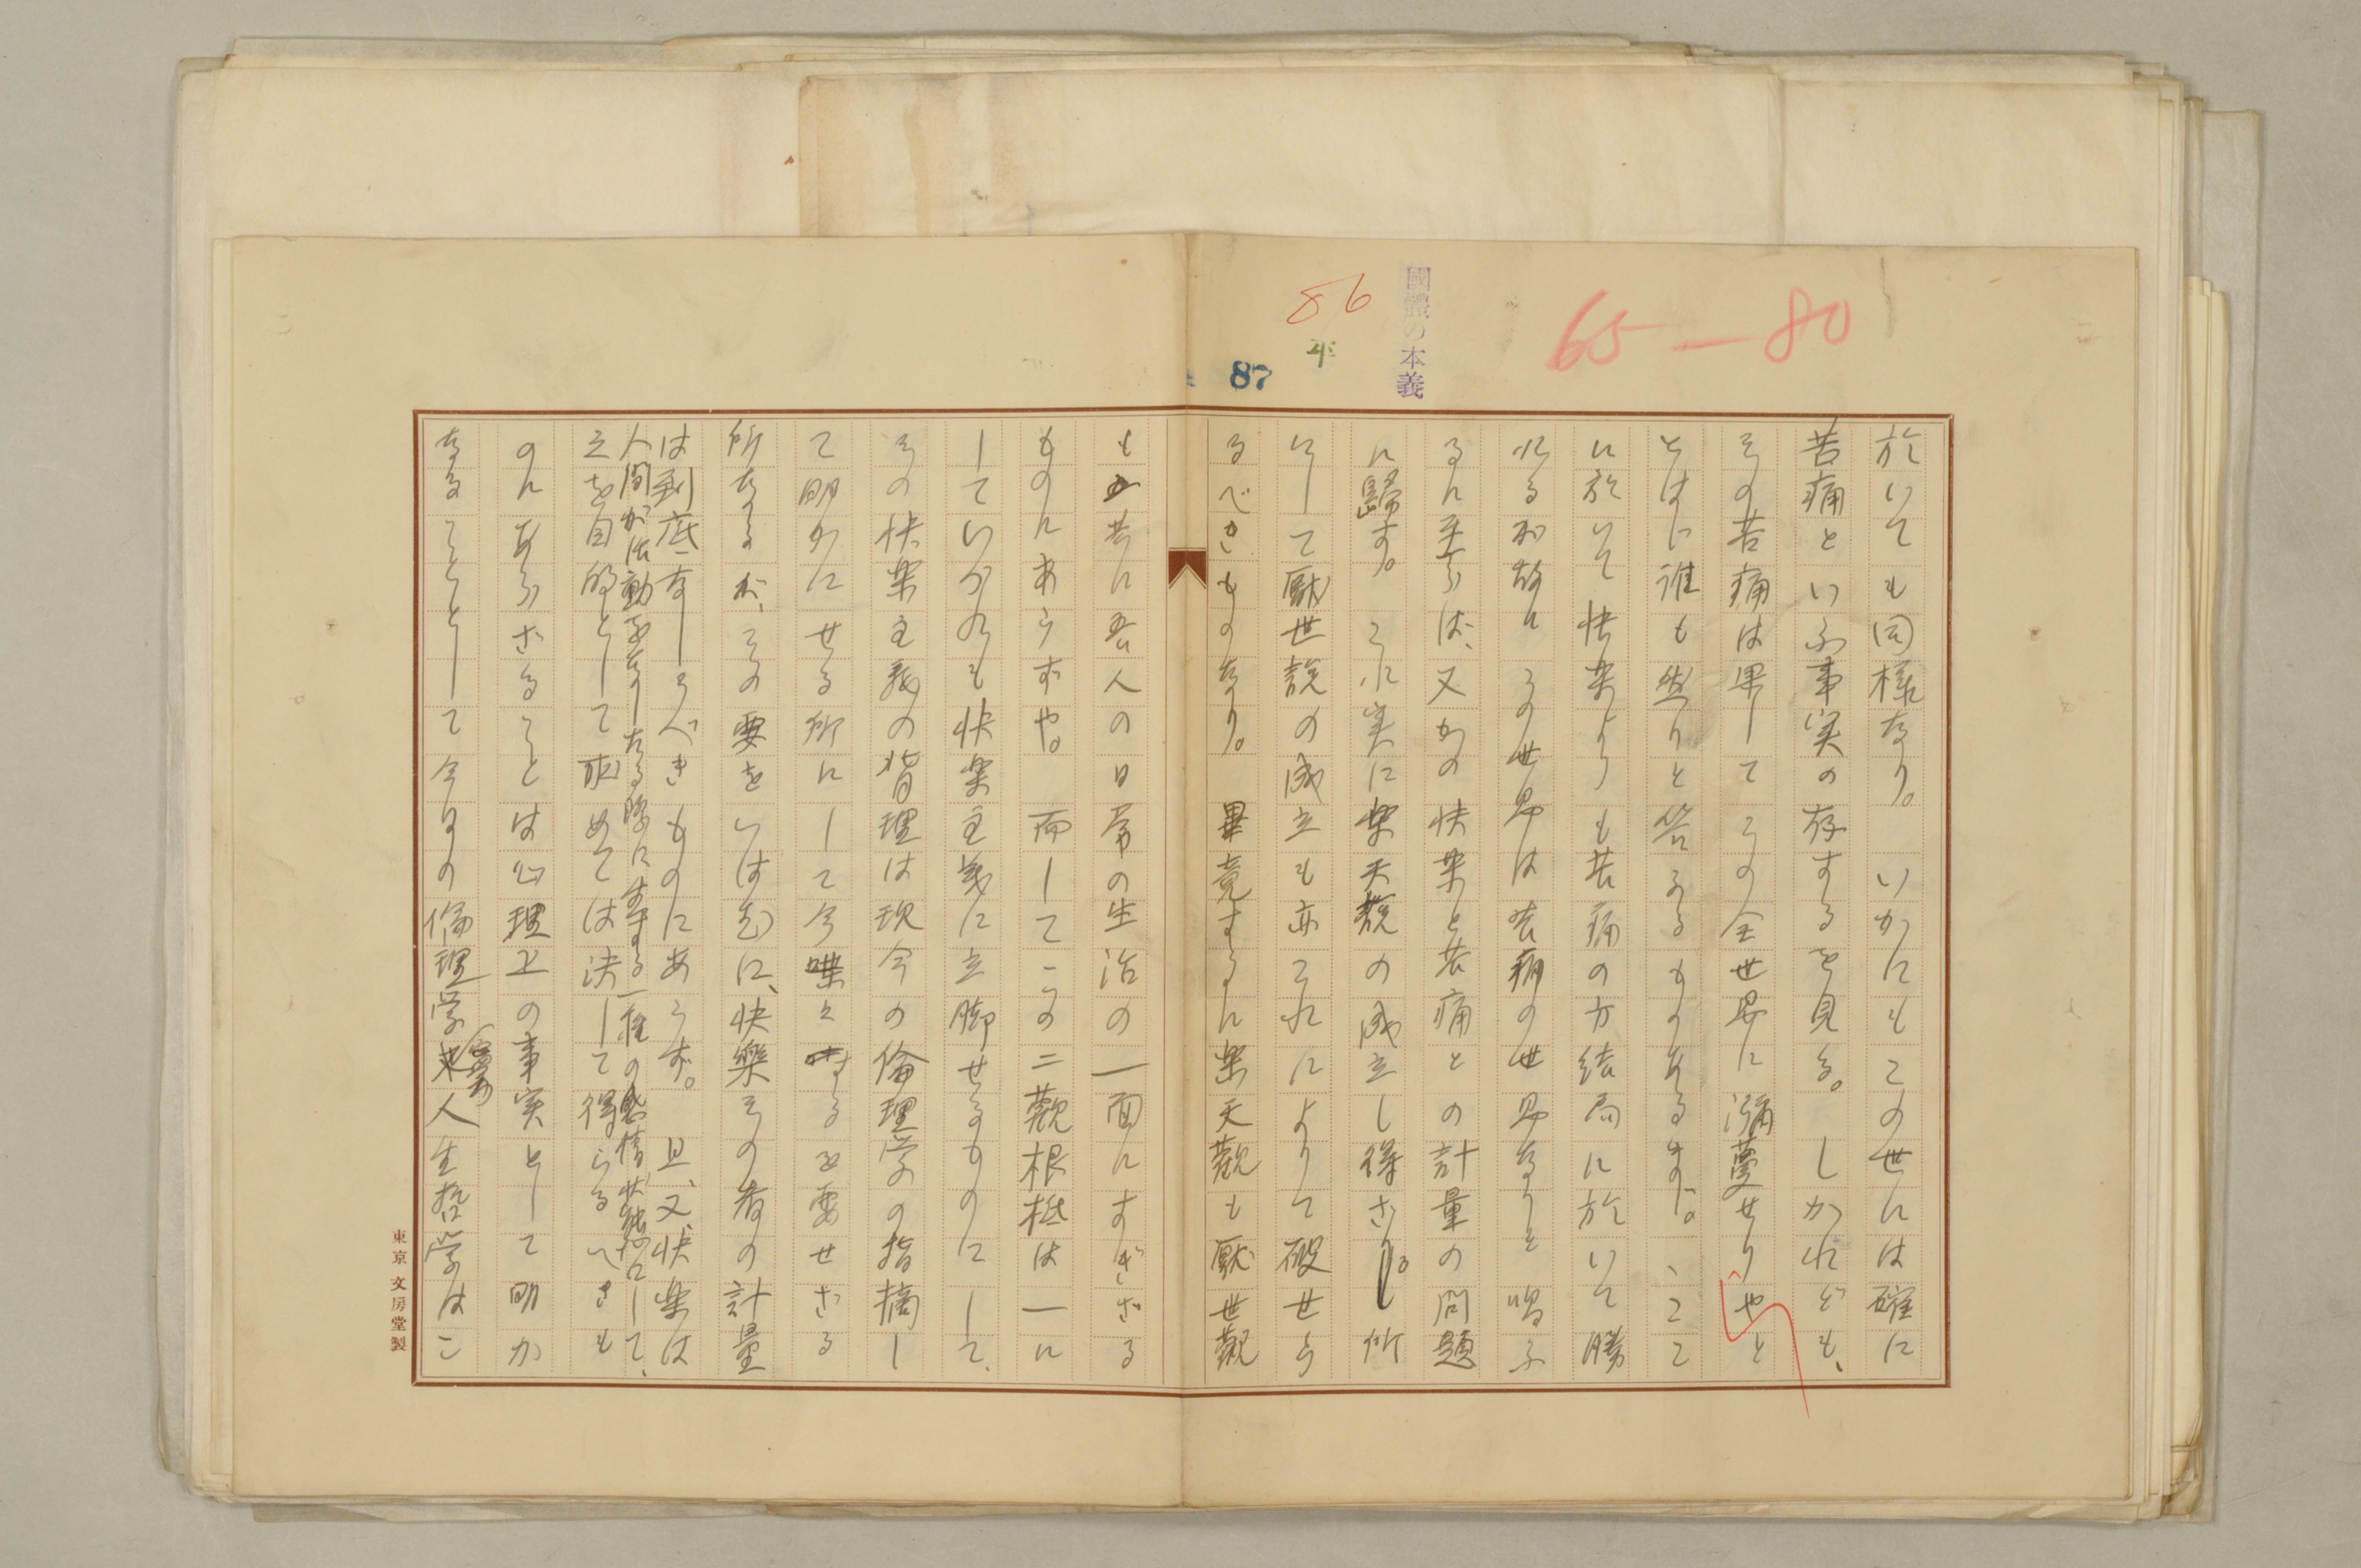 65-80
國體の本義
86
平
87
於いても同様なり。 いかにもこの世には確に
苦痛といふ事実の存するを見る。しかれども、
その苦痛は果してその全世界に瀰蔓せりやと
とはゞ誰も然りと答ふるものあるまじ。こゝ
に於いて快楽よりも苦痛の方結局に於いて勝
れるが故にその世界は苦痛の世界なりと唱ふ
るに至らば、又かの快楽と苦痛との計量の問題
に歸す。 これ実に楽天説の成立し得ざりし所
にして厭世説の成立も亦これによりて破せら
るべきものなり。 畢竟するに楽天觀も厭世觀
も共に吾人の日常の生活の一面にすぎざる
ものにあらずや。 而してこの二觀根柢は一に
していづれも快楽主義に立脚せるものにして、
その快楽主義の背理は現今の倫理学の指摘し
て明かにせる所にして今喋々するを要せざる
所なるが、その要をいはむに、快樂その者の計量
は到底なしうべきものにあらず。 且、又快楽は
人間が活動をなしたる際に生ずる一種の感情状態にして、
之を目的として求めては決して得らるべきも
のにあらざることは心理上の事実として明か
なることとして今日の倫理学人生哲学はこ
東京 文房堂製